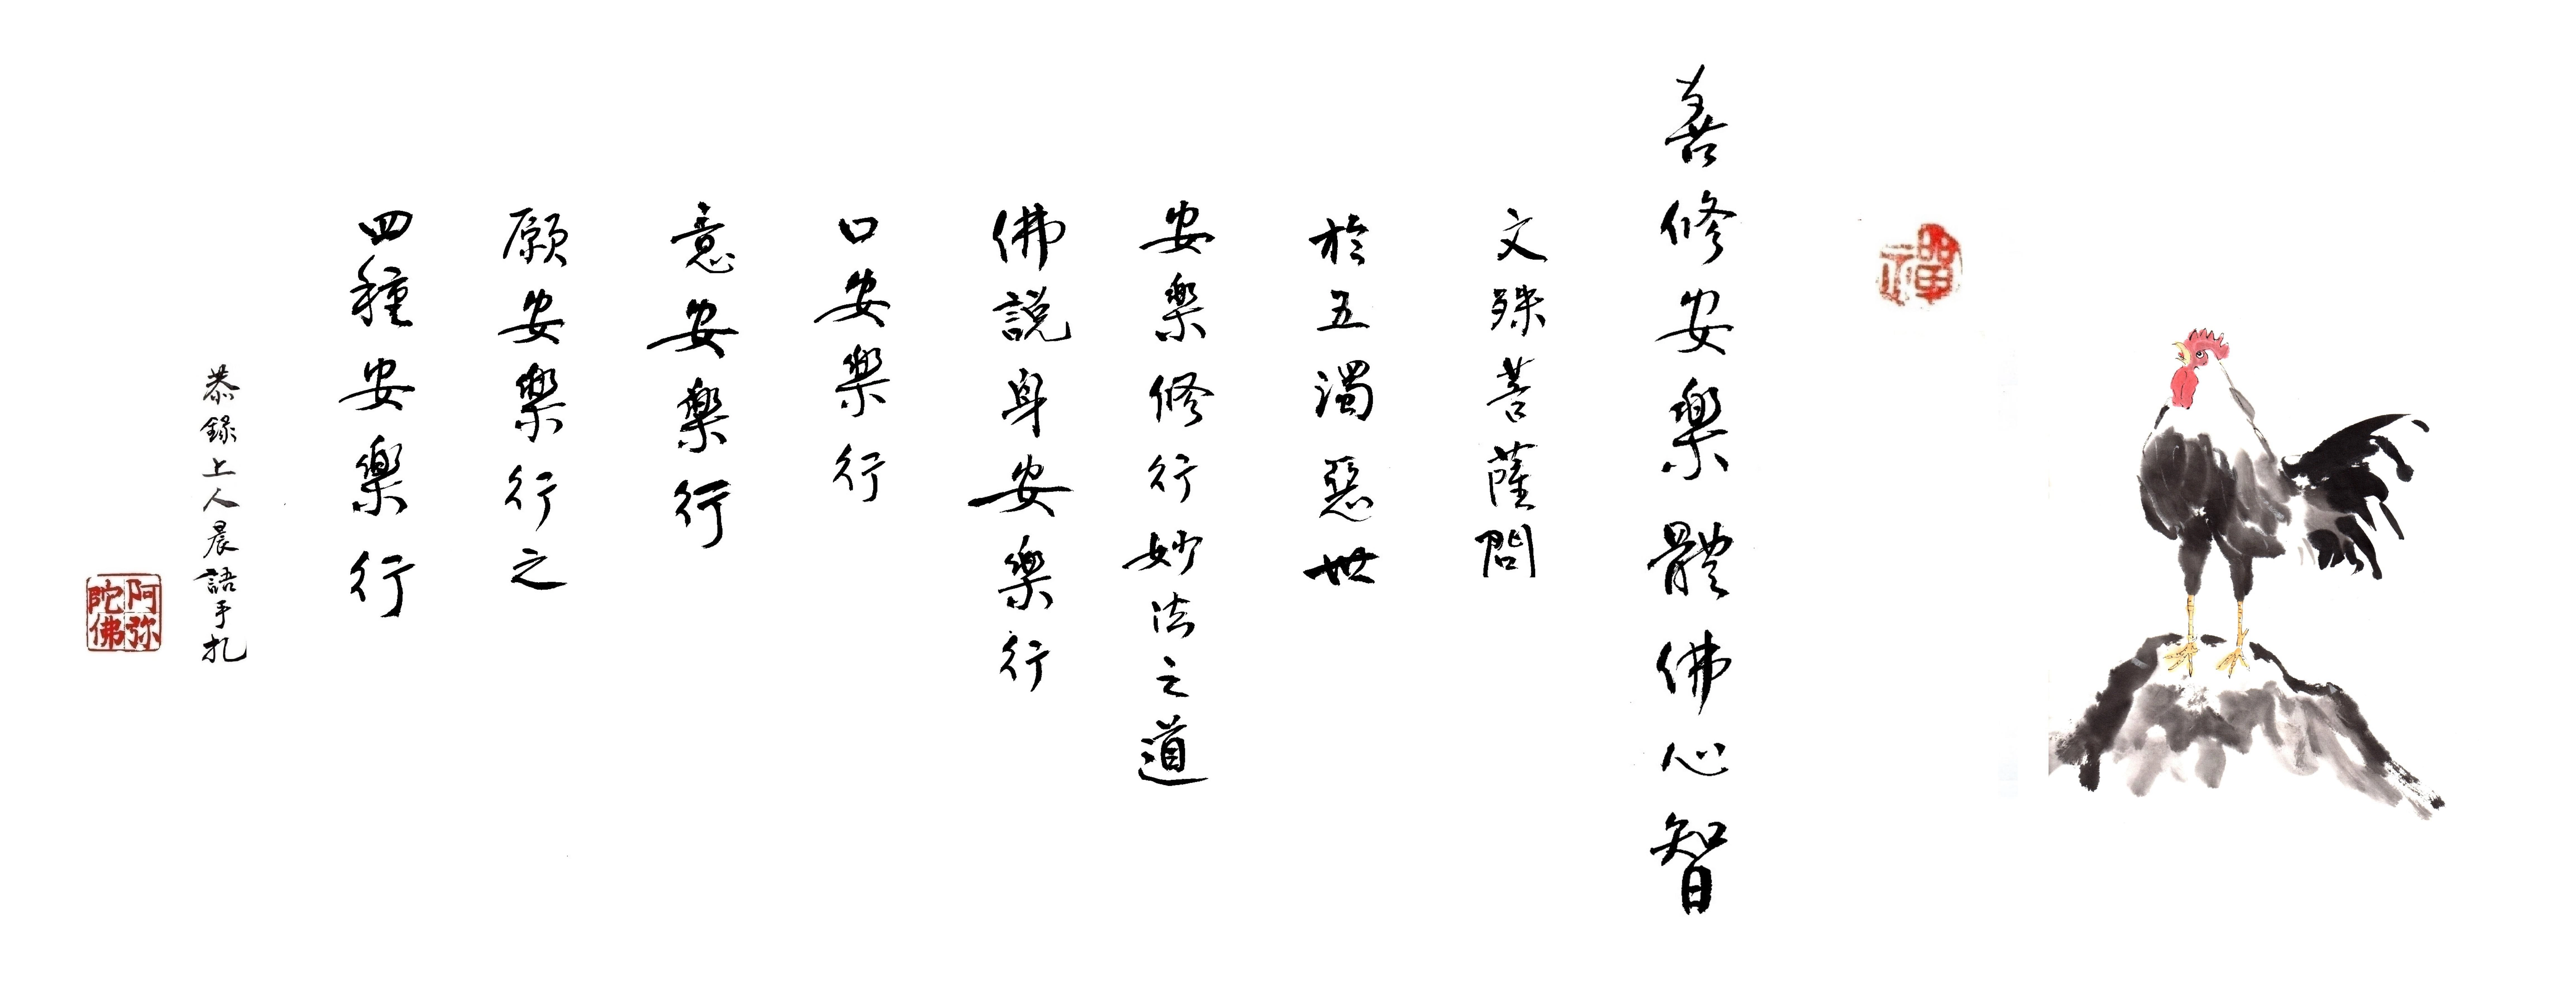 禪
善修安樂體佛心智
文殊菩薩問
於五濁惡世
安樂修行妙法之道
佛說身安樂行
口安樂行
意安樂行
願安樂行之
四種安樂行
恭錄上人晨語手札
阿弥
陀佛